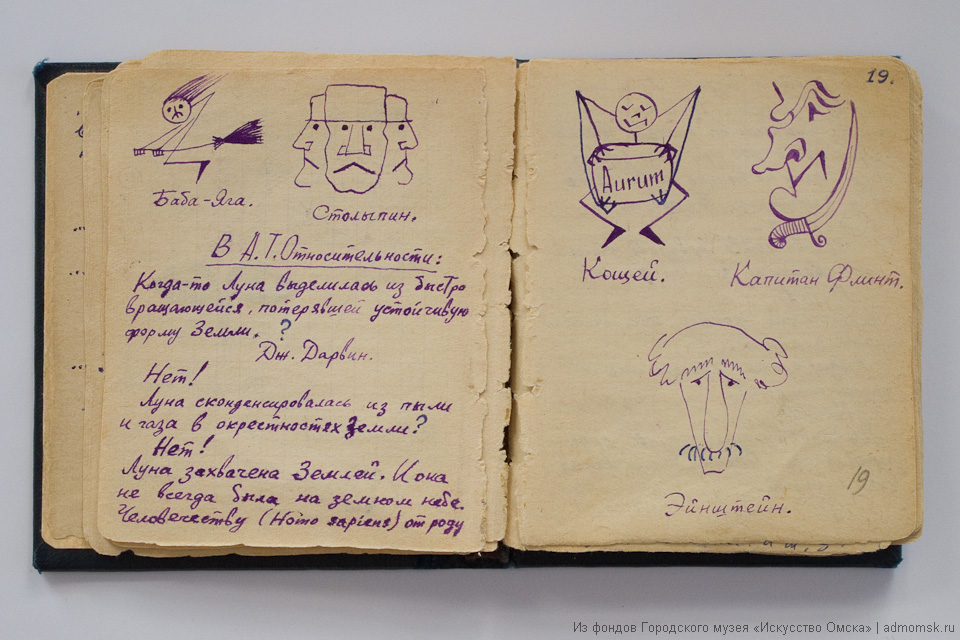 Баба-Яга.
Столыпин.
В А.Т.Относительности:
Когда-то Луна выделилась из быстро
вращающейся, потерявшей устойчивую
форму Земли. ?
Дж. Дарвин.
Нет!
Луна сконденсировалась из пыли
и газа в окрестностях Земли?
Нет!
Луна захвачена Землей. И она
не всегда была на земном небе.
Человечеству (Homo sapiens) от роду
19.
Aurum
Кощей.
Капитан Флинт.
Эйнштейн.
19
Из фондов Городского музея «Искусство Омска» | admomsk.ru